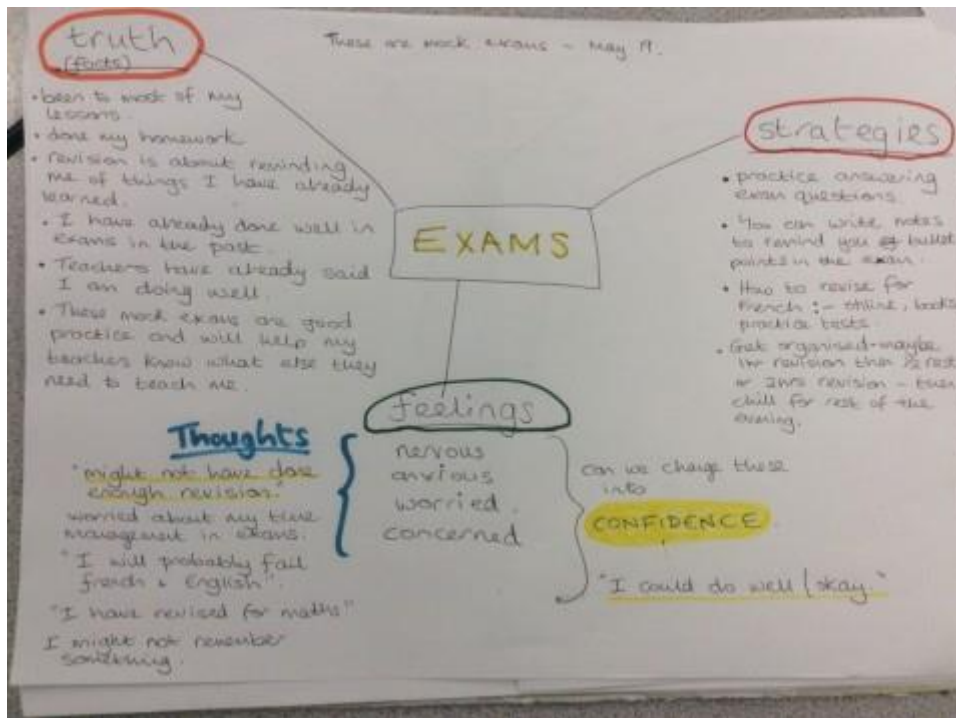 These are mock exams - May 19.
truth
(facts)
• been to most of my
lessons.
• done my homework
• revision is about reminding
me of things I have already
learned.
• I have already done well in
exams in the past.
• Teachers have already said
I am doing well.
• These mock exams are good
practice and will help my
teachers know what else they
need to teach me.
EXAMS
strategies
• practice answering
exam questions.
• You can write notes
to remind you of bullet
points in the exam.
• How to revise for
French :- online, books
practice tests.
• Get organised - maybe
1hr revision then 1/2 rest
or 2hrs revision - then
chill for rest of the
evening.
feelings
nervous
anxious
worried.
concerned
Thoughts
"might not have done
enough revision."
worried about my time
management in exams.
"I will probably fail
french & English".
"I have revised for maths!"
I might not remember
something.
can we change these
into
CONFIDENCE.
"I could do well / okay."